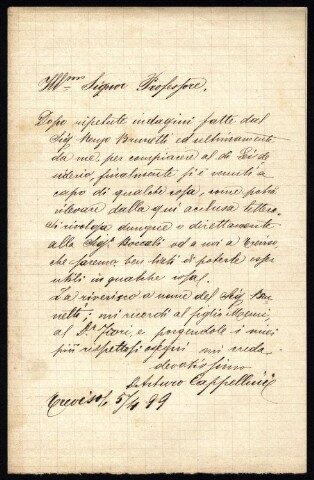 Ill.mo Signor Professore,
Dopo ripetute indagini fatte dal
Sig. Renzo Brunetti ed ultimamente
da me, per compiacere al di Lei de
siderio, finalmente si è venuti a
capo di qualche cosa, come potrà
rilevare dalla qui acclusa lettera.
Si rivolga dunque o direttamente
alla Sig.ra Boccali od a noi a Treviso,
che saremo ben lieti di poterle esser
utili in qualche cosa.
La riverisco a nome del Sig. Bru
netti; mi ricordi al figlio
al D.r e porgendole i miei
più rispettosi ossequi mi creda
devotissimo
Arturo Cappellini
Treviso, 5/4 99